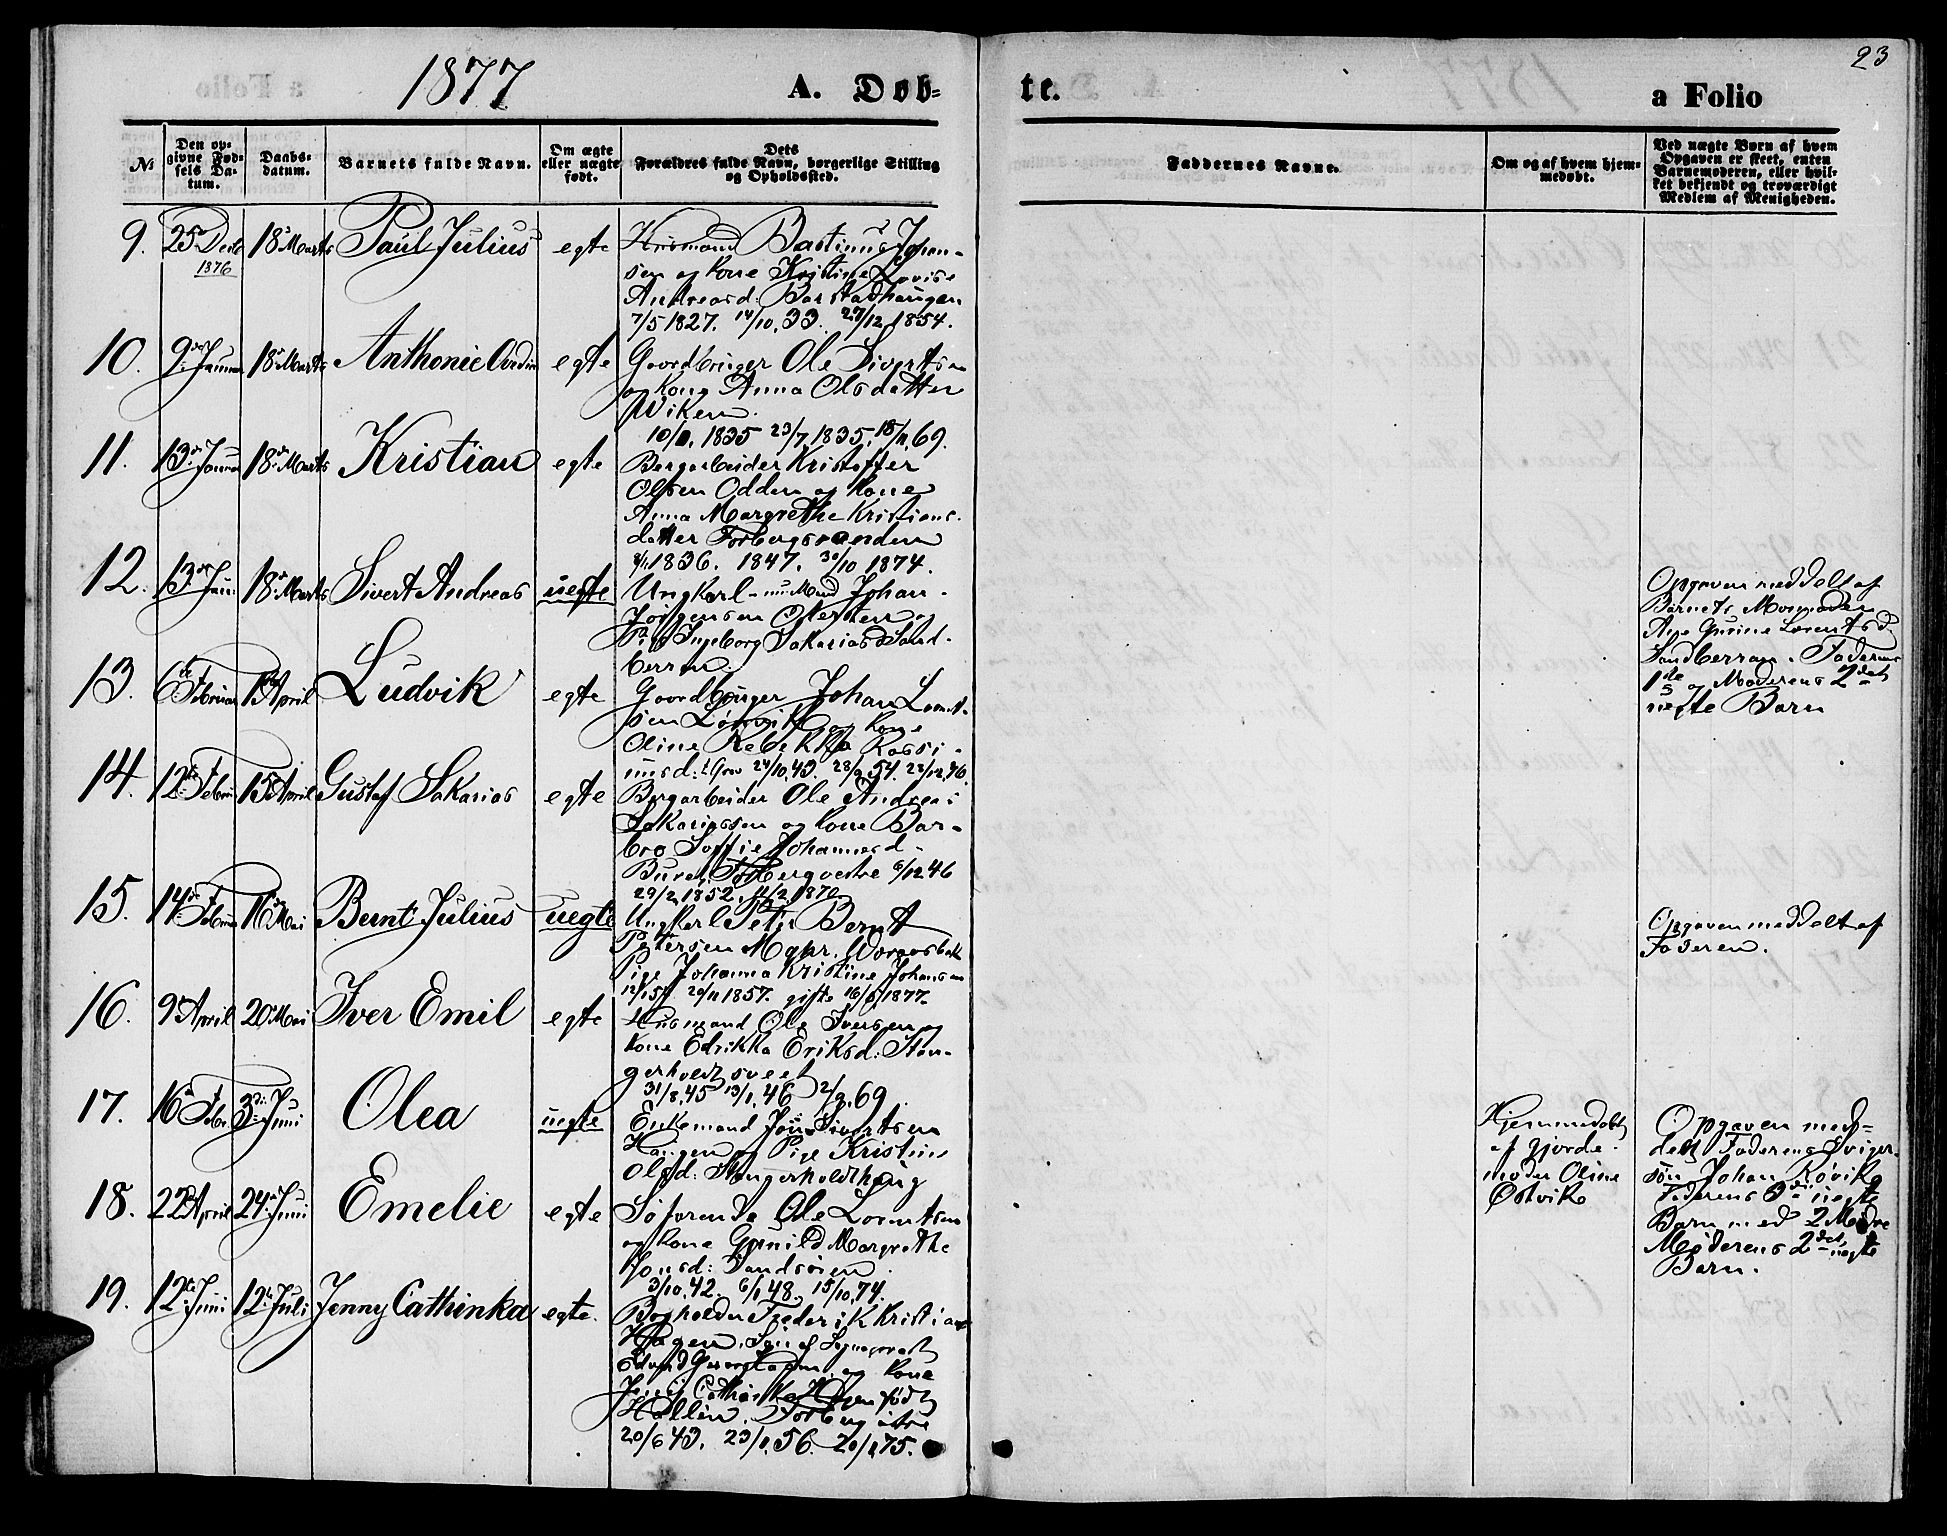 23
1877
A. Døb-
te.
a Folio
№
Den op-
givne Fød-
sels Da-
tum.
Daabs-
datum.
Barnets fulde Navn.
Om ægte
eller nægte
født.
Dets
Forældres fulde Navn, borgerlige Stilling
og Opholdssted.
Faddernes Navne.
Om og af hvem hjem-
medøbt.
Ved nægte Børn af hvem
Opgaven er skeet, enten
Barnemoderen, eller hvil-
ket bekjendt og troværdigt
Medlem af Menigheden.
9. 25 Decb 1876 18 Marts Paul Julius egte
Husmand Bastinus Johan-
sen og Kone Kristine Lovise
Andreasd: Barstadhaugen
7/5 1827. 14/10.33. 27/12 1854.
10. 9 Januar 18 Marts Anthonie egte
Gaardbruger Ole Sivertsen
og Kone Anna Olsdatter
Wiken.
1835 23/7 1835. 69.
11. 13 Januar 18 Marts Kristian egte
Bergarbeider Kristoffer
Olsen Odden og Kone
Anna Margrethe Kristians-
datter
1836. 1847. 30/10 1874.
12. 13 Jan: 18 Marts Sivert Andreas uegte
Ungkarl - nu Mand Johan
Jørgensen og
Pige Ingeborg Sakariasd Sand-
berren.
Opgaven meddelt af
Barnets Mormoder
Ane Gurine Lorentsd
Sandberran. Faderens
1ste og Moderens 2det
uegte Barn
13. 6te Februar 15 April Ludvik egte
Gaardbruger Johan Lornt-
sen og Kone
Oline Rebekka Rassi-
nusd: 24/10.43. 28/9.54. 28/12.76.
14. 12te Febru 15 April Gustaf Sakarias egte
Bergarbeider Ole Andreas
Sakariassen og Kone Bar-
bro Soffie Johannesd
6/12 46
29/2 1852. 1870
15. 14 Februar 16 Mai Bernt Julius uegte
Ungkarl Peter Bernt
Petersen
Pige Johanna Kristine Johansen
20/11 1857. gifte 16/6 1877.
Opgaven meddelt af
Faderen.
16. 9 April 20 Mai Iver Emil egte
Husmand Ole Iversen og
Kone Edrikka Eriksd: Stan-
gerholdtsveet
31/8.45 13/1.46 2/9.69.
17. 16 Febr. 3 Juni Olea uegte
Enkemand Jon Sivertsen
Haugen og Pige Kristine
Olsd: Stangerholdthaug
Hjemmedøbt
af gjorde-
moder Oline
Østvik
Opgaven med-
delt Faderens Sviger-
søn Johan Røvik
Faderens 3die uegte
Barn med 2 Mødre
Moderens 2det uegte
Barn.
18. 22 April 24 Juni Emelie egte
Søfarende Ole Lorntsen
og Kone Gunild Margrethe
Jonsd: Sandsøien
3/10.42. 6/1.48. 15/10.74.
19. 12te Juni 12te Juli Jenny Cathinka egte.
Bogholder Frederik Kristian
Hagen. Søn af Sogneprest
Edvard Georg Hagen og Kone
Jenny Cathinka Hagen født
Hallin. Forberg østre
20/6 43. 23/1.56. 20/1.75.